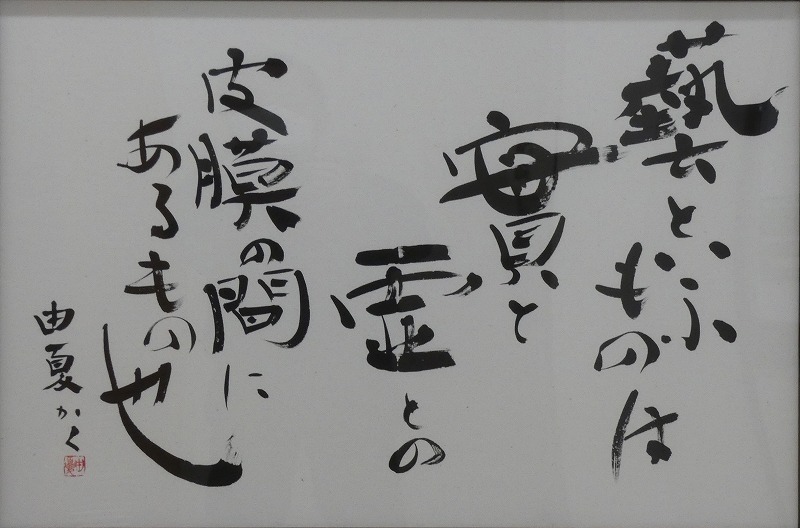 藝といふ
ものは
實と
虚との
皮膜の間に
あるもの也
由夏かく